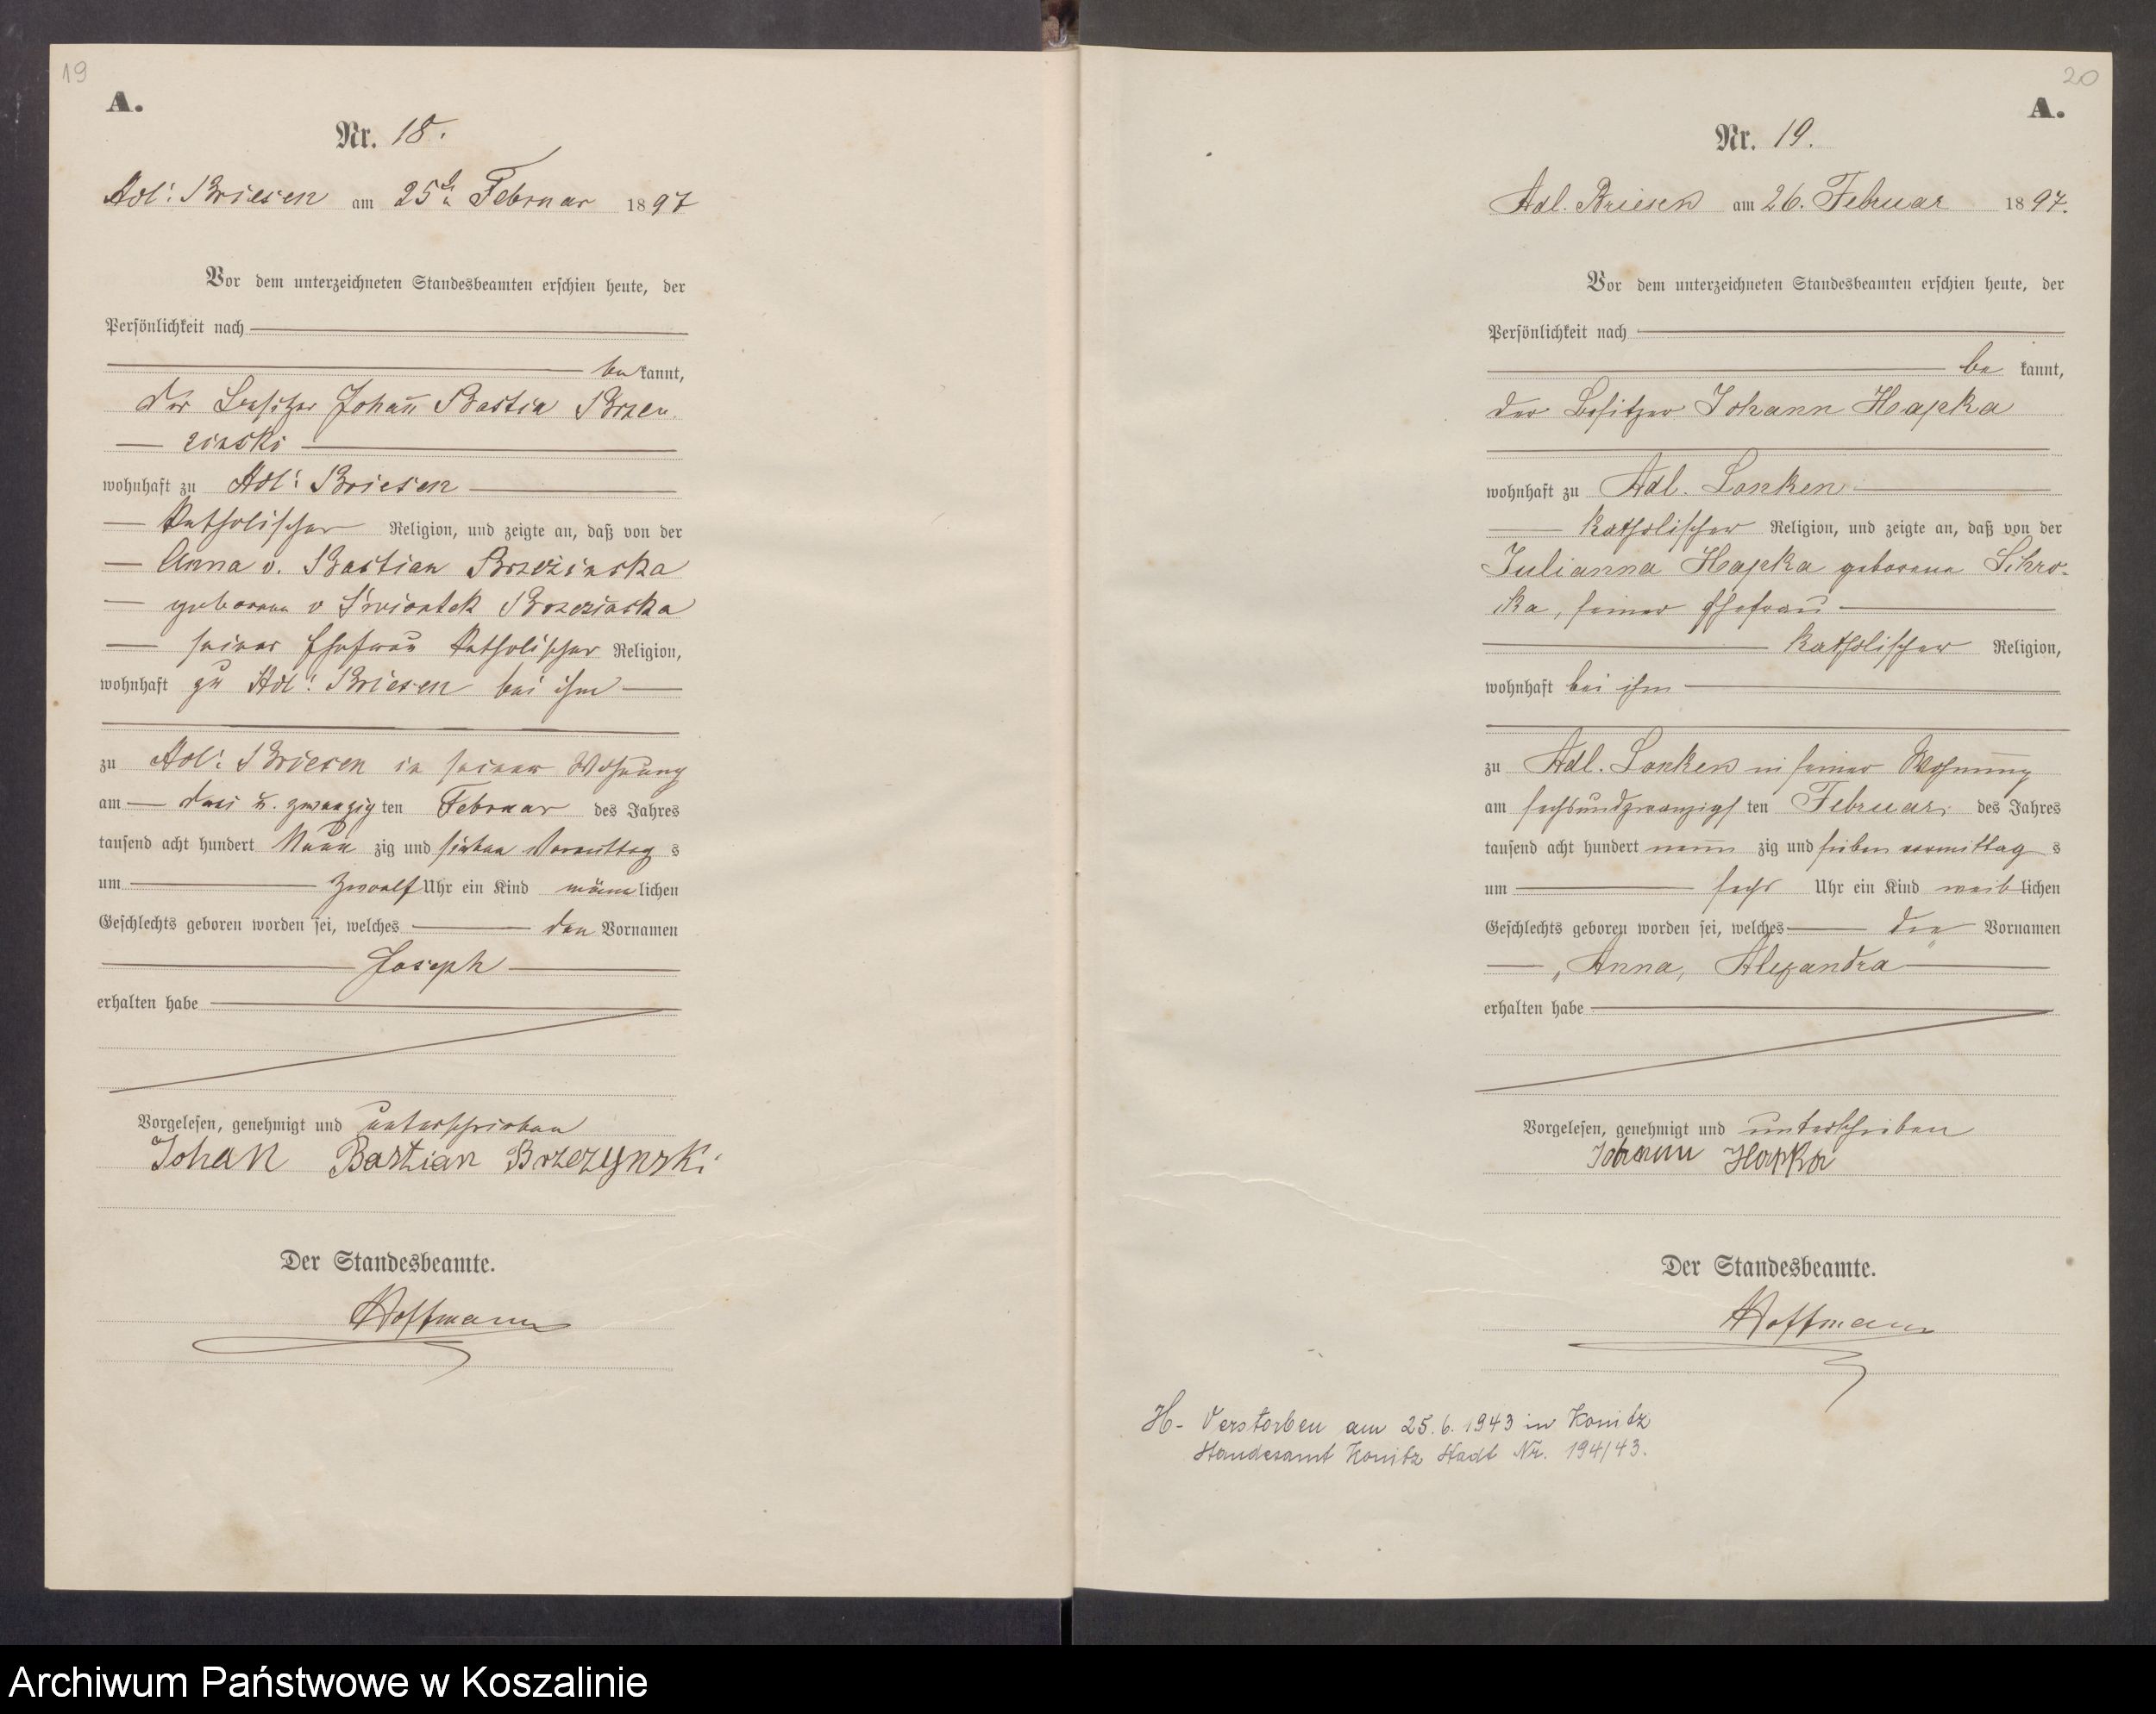 19
A.
Nr. 18.
Adl: Briesen am 25ten Februar 1897
Vor dem unterzeichneten Standesbeamten erschien heute, der
Persönlichkeit nach
be kannt,
der Besitzer Johann Bastia Brze
zinski
wohnhaft zu Adl: Briesen
katholischer Religion, und zeigte an, daß von der
Anna v. Bastian Brzezinska
geborene v Swiontek Brzezinska
seiner Ehefrau katholischer Religion,
wohnhaft zu Adl: Briesen bei ihm
zu Adl: Briesen in seiner Wohnung
am drei u. zwanzig ten Februar des Jahres
tausend acht hundert Neun zig und sieben Vormittag s
um zwoelf Uhr ein Kind männ lichen
Geschlechts geboren worden sei, welches den Vornamen
Joseph
erhalten habe
Vorgelesen, genehmigt und unterschrieben
Johan Bastian Brzezynski
Der Standesbeamte.
Hoffmann
20
A.
Nr. 19.
Adl. Briesen am 26. Februar 1897.
Vor dem unterzeichneten Standesbeamten erschien heute, der
Persönlichkeit nach
be kannt,
der Besitzer Johann Hapka
wohnhaft zu Adl. Lonken
katholischer Religion, und zeigte an, daß von der
Julianna Hapka geborene Schro-
ka, seiner Ehefrau
katholischer Religion,
wohnhaft bei ihm
zu Adl. Lonken in seiner Wohnung
am sechsundzwanzigs ten Februar des Jahres
tausend acht hundert neun zig und sieben vormittag s
um sechs Uhr ein Kind weib lichen
Geschlechts geboren worden sei, welches die Vornamen
„Anna, Alexandra"
erhalten habe
Vorgelesen, genehmigt und unterschrieben
Johann Hapka
Der Standesbeamte.
Hoffmann
H- Verstorben am 25.6.1943 in Konitz
Standesamt Konitz Stadt Nr. 194/43.
Archiwum Państwowe w Koszalinie